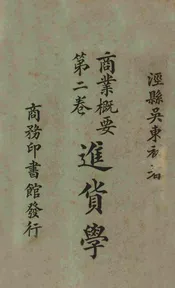 涇縣吳東初著
商業概要
第二卷
進貨學
商務印書館發行